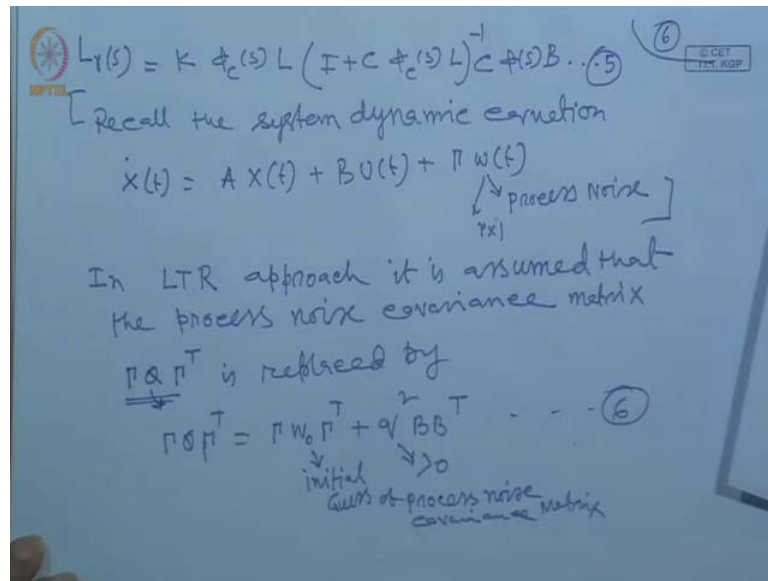 L_r(s) = K Φ_c(s) L (I + C Φ_c(s) L)^{-1} C Φ(s) B ... (5)
(6)
© CET
I.I.T. KGP
NPTEL
[ Recall the system dynamic equation
ẋ(t) = A X(t) + B U(t) + Γ W(t)
Process Noise ]
r×1
In LTR approach it is assumed that
the process noise covariance matrix
Γ Q Γ^T is replaced by
Γ Q Γ^T = Γ W_0 Γ^T + q^2 B B^T - - - (6)
initial >0
Guess of process noise
covariance Matrix